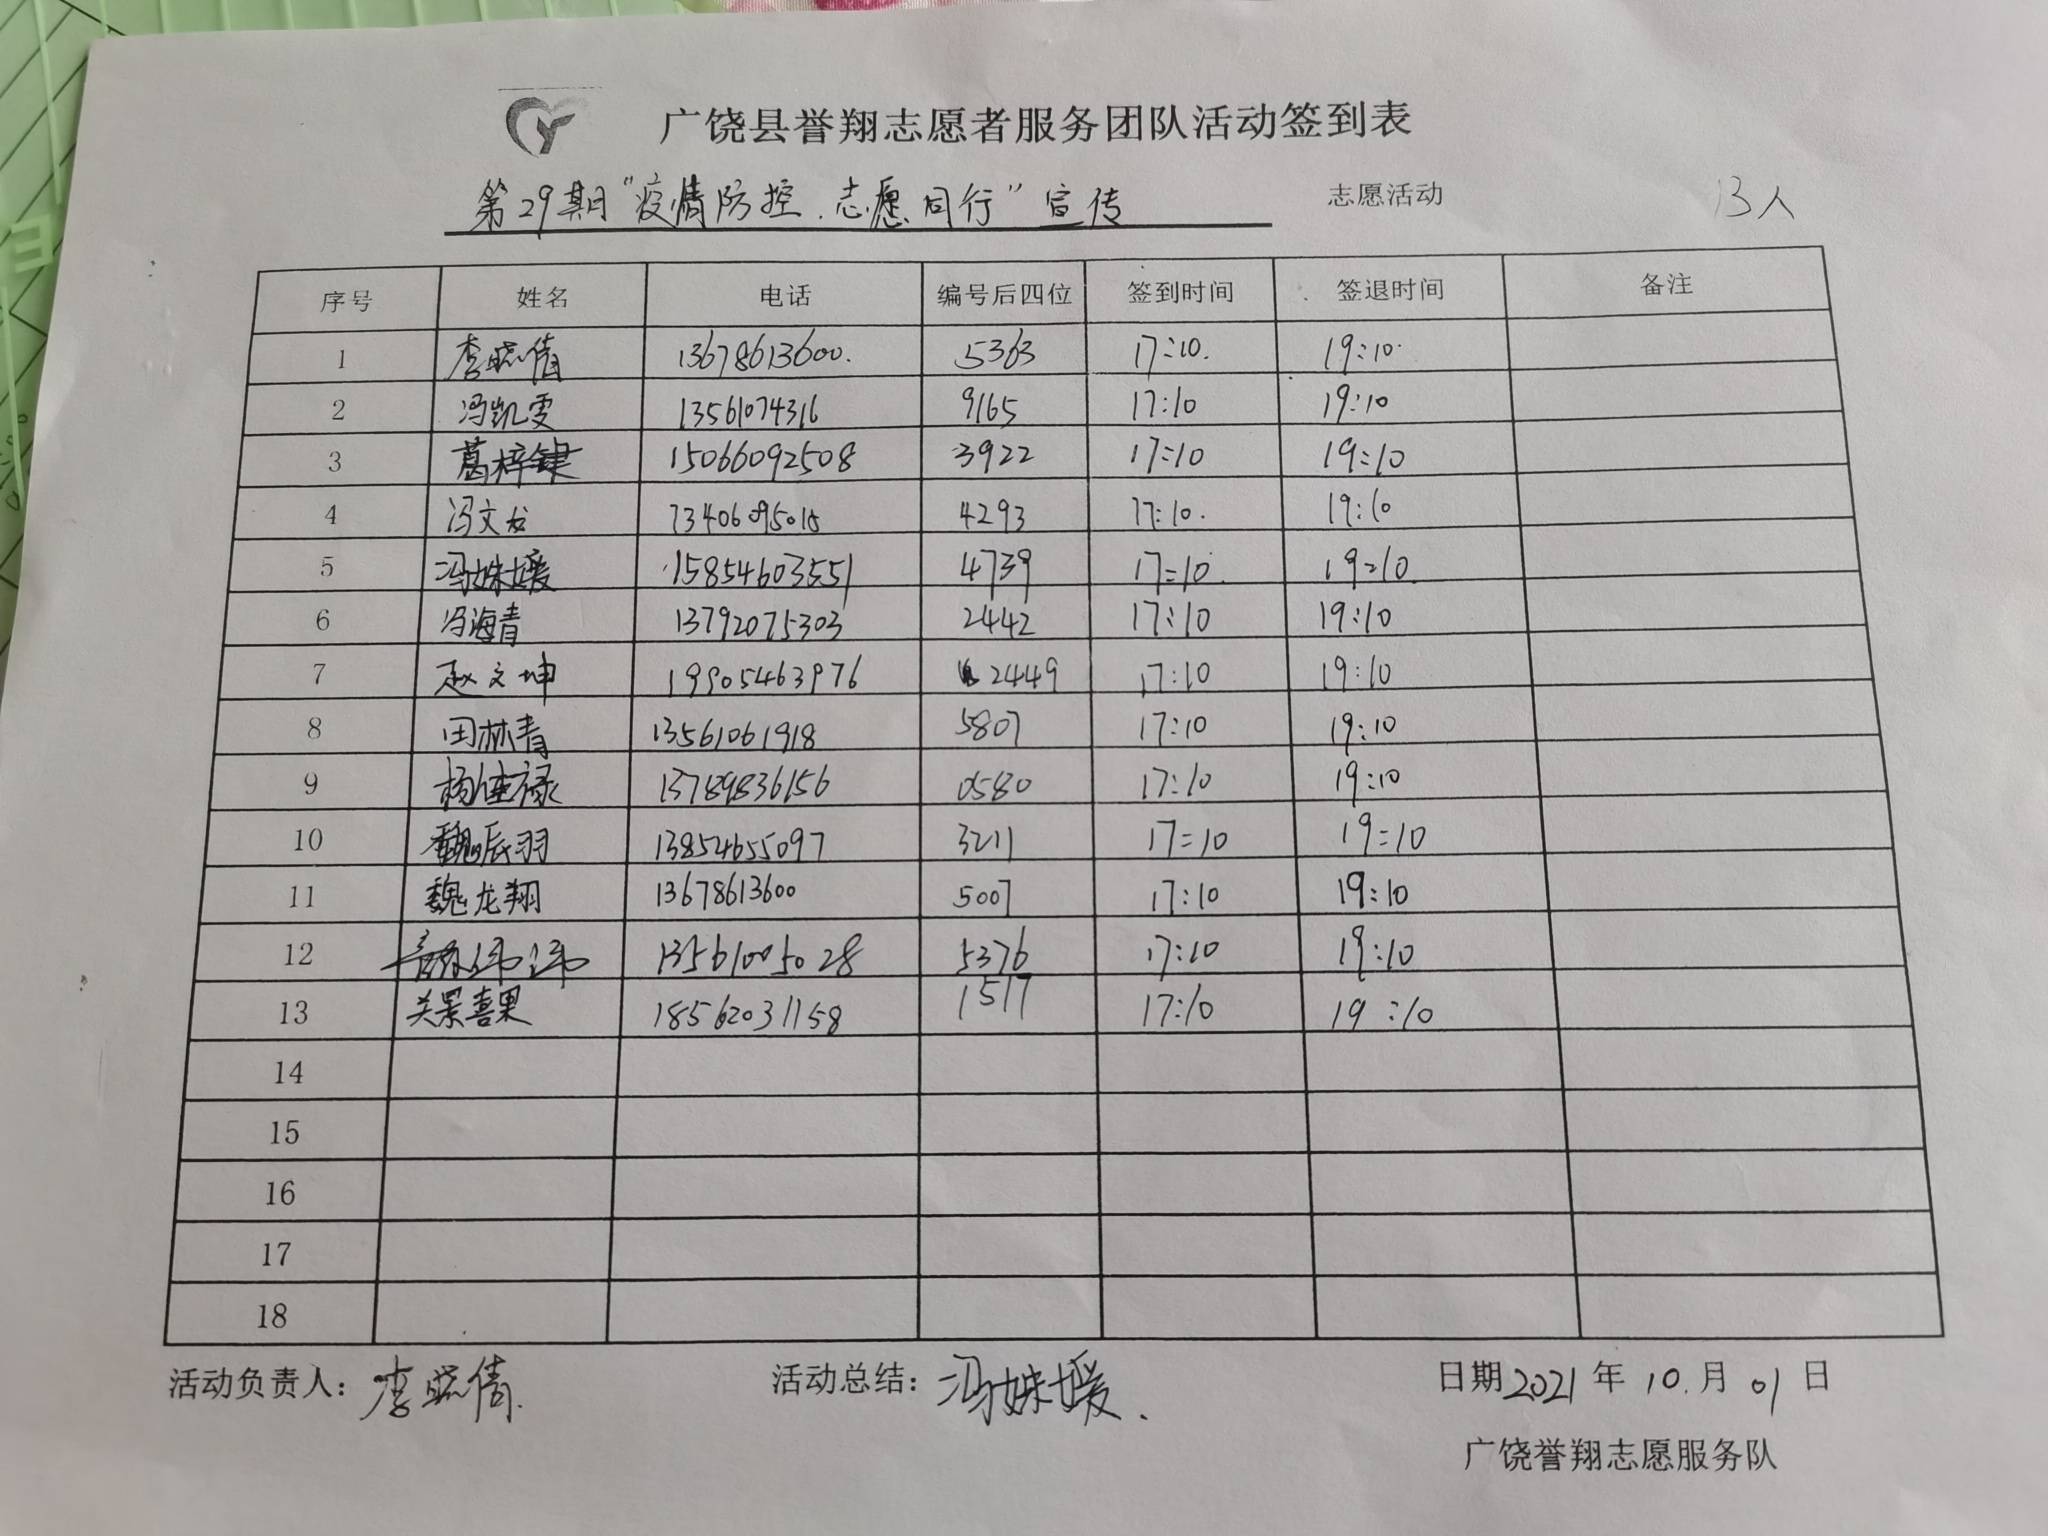 广饶县誉翔志愿者服务团队活动签到表
第29期“疫情防控、志愿同行”宣传 志愿活动 13人
序号 姓名 电话 编号后四位 签到时间 签退时间 备注
1 李晓倩 13678613600. 5363 17:10. 19:10.
2 冯凯雯 13561074316 9165 17:10 19:10
3 葛梓健 15066092508 3922 17:10 19:10
4 冯文龙 4293 17:10. 19:10
5 冯姝媛 15854603551 4739 17:10. 19:10.
6 冯海青 13792075303 2442 17:10 19:10
7 赵文坤 19905463976 2449 17:10 19:10
8 田林青 13561061918 5807 17:10 19:10
9 杨佳禄 13789836156 0580 17:10 19:10
10 魏辰羽 13854655097 3211 17:10 19:10
11 魏龙翔 13678613600 5007 17:10 19:10
12 13561005028 5376 17:10 19:10
13 关景喜果 18562031158 1517 17:10 19:10
14
15
16
17
18
活动负责人：李晓倩. 活动总结：冯姝媛. 日期2021年10.月01日
广饶誉翔志愿服务队